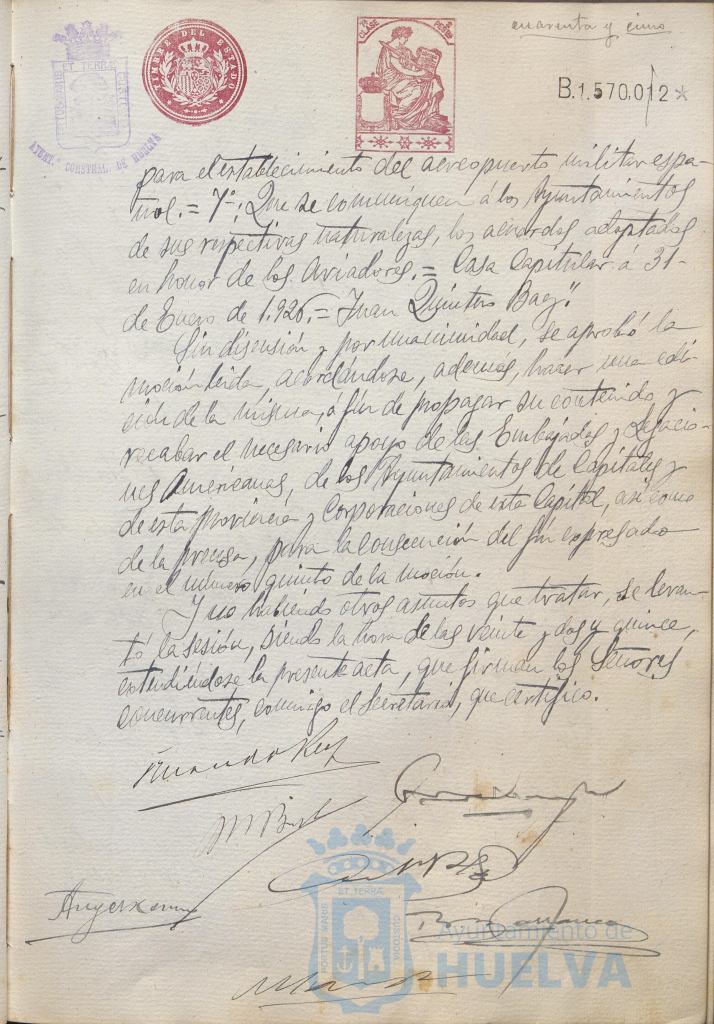 cuarenta y cinco
TIMBRE DEL ESTADO
CLASE
PESETAS
B.1.570.012*
AYUNT.º CONSTNAL. DE HUELVA
para el establecimiento del aereopuerto militar espa-
ñol.= 7º: Que se comuniquen á los Ayuntamientos
de sus respectivas naturalezas, los acuerdos adoptados
en honor de los Aviadores.= Casa Capitular á 31-
de Enero de 1.926.= Juan Quintero Baez".
Sin discusión y por unanimidad, se aprobó la
moción leida, acordándose, además, hacer una edi-
ción de la misma, á fin de propagar su contenido y
recabar el necesario apoyo de las Embajadas y Legacio-
nes Americanas, de los Ayuntamientos de Capitales y
de esta provincia y Corporaciones de esta Capital, así como
de la prensa, para la consecución del fin expresado
en el número quinto de la moción.
Y no habiendo otros asuntos que tratar, se levan-
tó la sesión, siendo la hora de las veinte y dos y quince,
extendiéndose la presente acta, que firman los Señores
concurrentes, conmigo el Secretario, que certifico.
ET TERRÆ
PORTUS MARIS
CUSTODIA
Ayuntamiento de
HUELVA